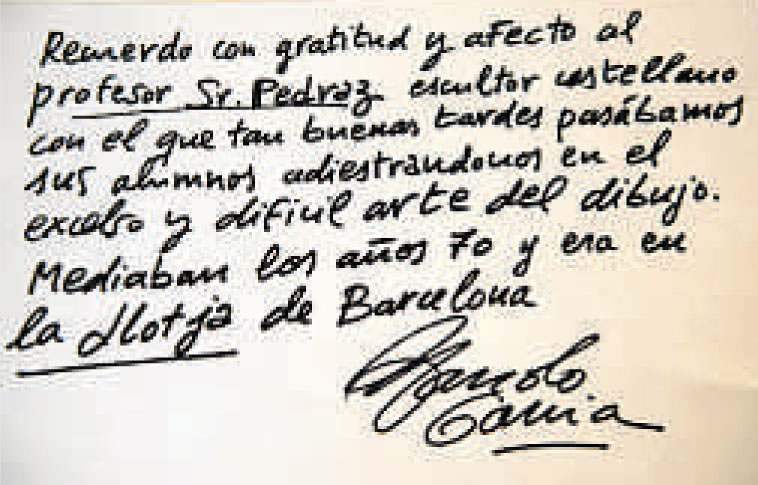 Recuerdo con gratitud y afecto al
profesor Sr. Pedraz escultor castellano
con el que tan buenas tardes pasábamos
sus alumnos adiestrándonos en el
excelso y dificil arte del dibujo.
Mediaban los años 70 y era en
la Llotja de Barcelona
Manolo
García